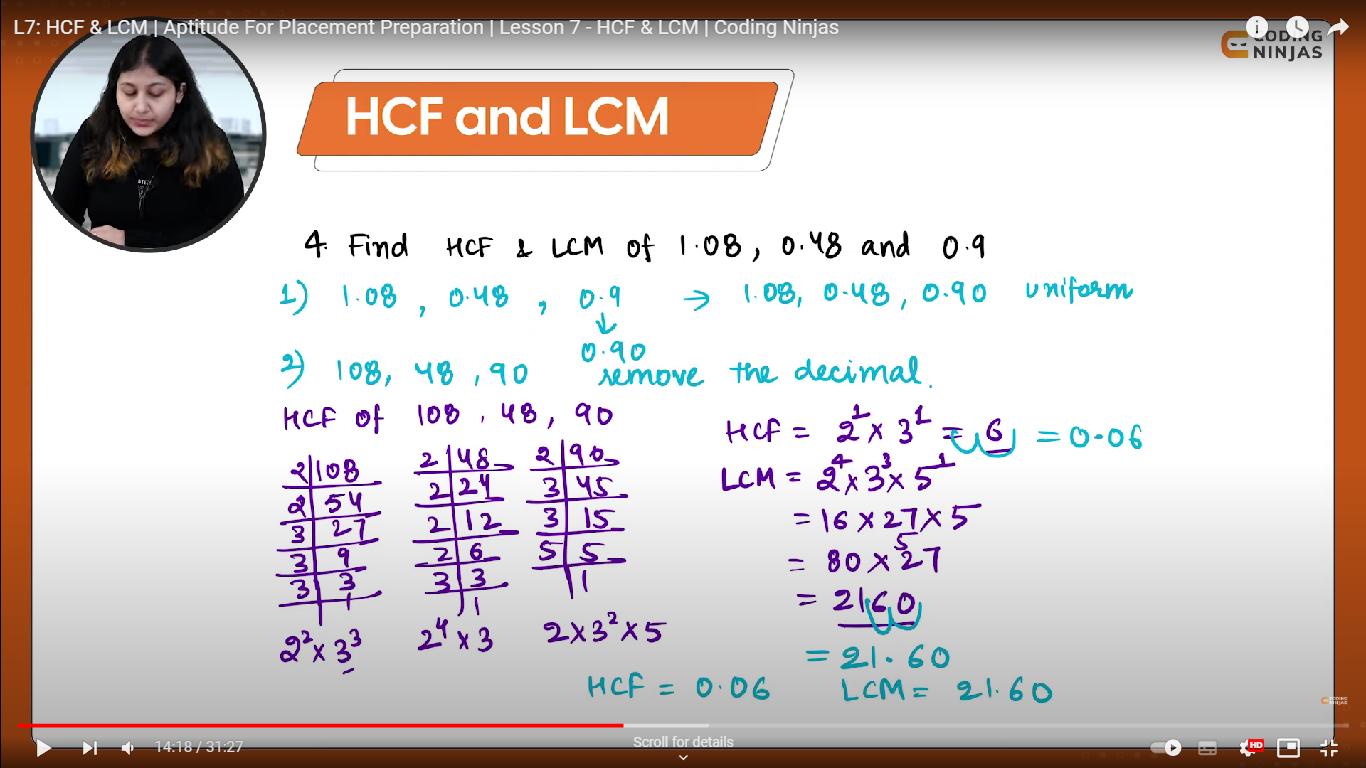 L7: HCF & LCM | Aptitude For Placement Preparation | Lesson 7 - HCF & LCM | Coding Ninjas
CODING
NINJAS
HCF and LCM
4. Find HCF & LCM of 1.08, 0.48 and 0.9
1) 1.08, 0.48, 0.9 → 1.08, 0.48, 0.90 uniform
↓
0.90
2) 108, 48, 90 remove the decimal.
HCF of 108, 48, 90
2|108 2|48 2|90
2|54 2|24 3|45
3|27 2|12 3|15
3|9 2|6 5|5
3|3 3|3 |1
|1 |1
2² × 3³ 2⁴ × 3 2 × 3² × 5
HCF = 2¹ × 3¹ = 6 = 0.06
LCM = 2⁴ × 3³ × 5¹
= 16 × 27 × 5
5
= 80 × 27
= 2160
= 21.60
HCF = 0.06 LCM = 21.60
CODING
NINJAS
14:18 / 31:27
Scroll for details
HD